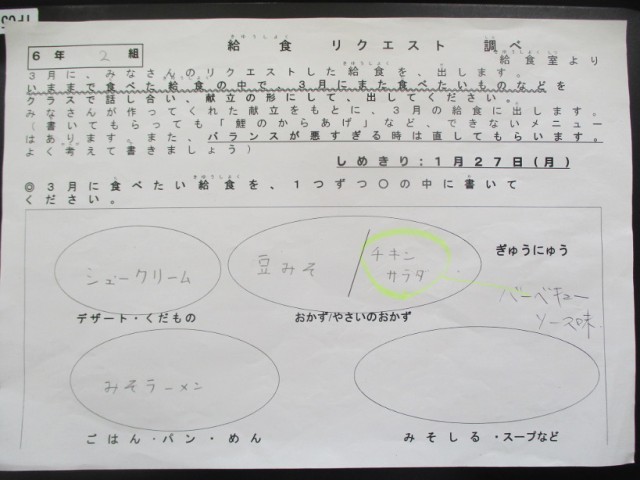 ６年 2 組
給食 リクエスト 調べ
給食室より
３月に、みなさんのリクエストした給食を、出します。
いままで食べた給食の中で、３月にまた食べたいものなどを
クラスで話し合い、献立の形にして、出してください。
みなさんが作ってくれた献立をもとに、３月の給食に出します。
（書いてもらっても「鯉のからあげ」など、できないメニュー
はあります。また、バランスが悪すぎる時は直してもらいます。
よく考えて書きましょう）
しめきり：１月２７日（月）
◎３月に食べたい給食を、１つずつ○の中に書いて
ください。
シュークリーム
豆みそ
チキン
サラダ
ぎゅうにゅう
バーベキュー
ソース味
デザート・くだもの
おかず/やさいのおかず
みそラーメン
ごはん・パン・めん
みそしる・スープなど